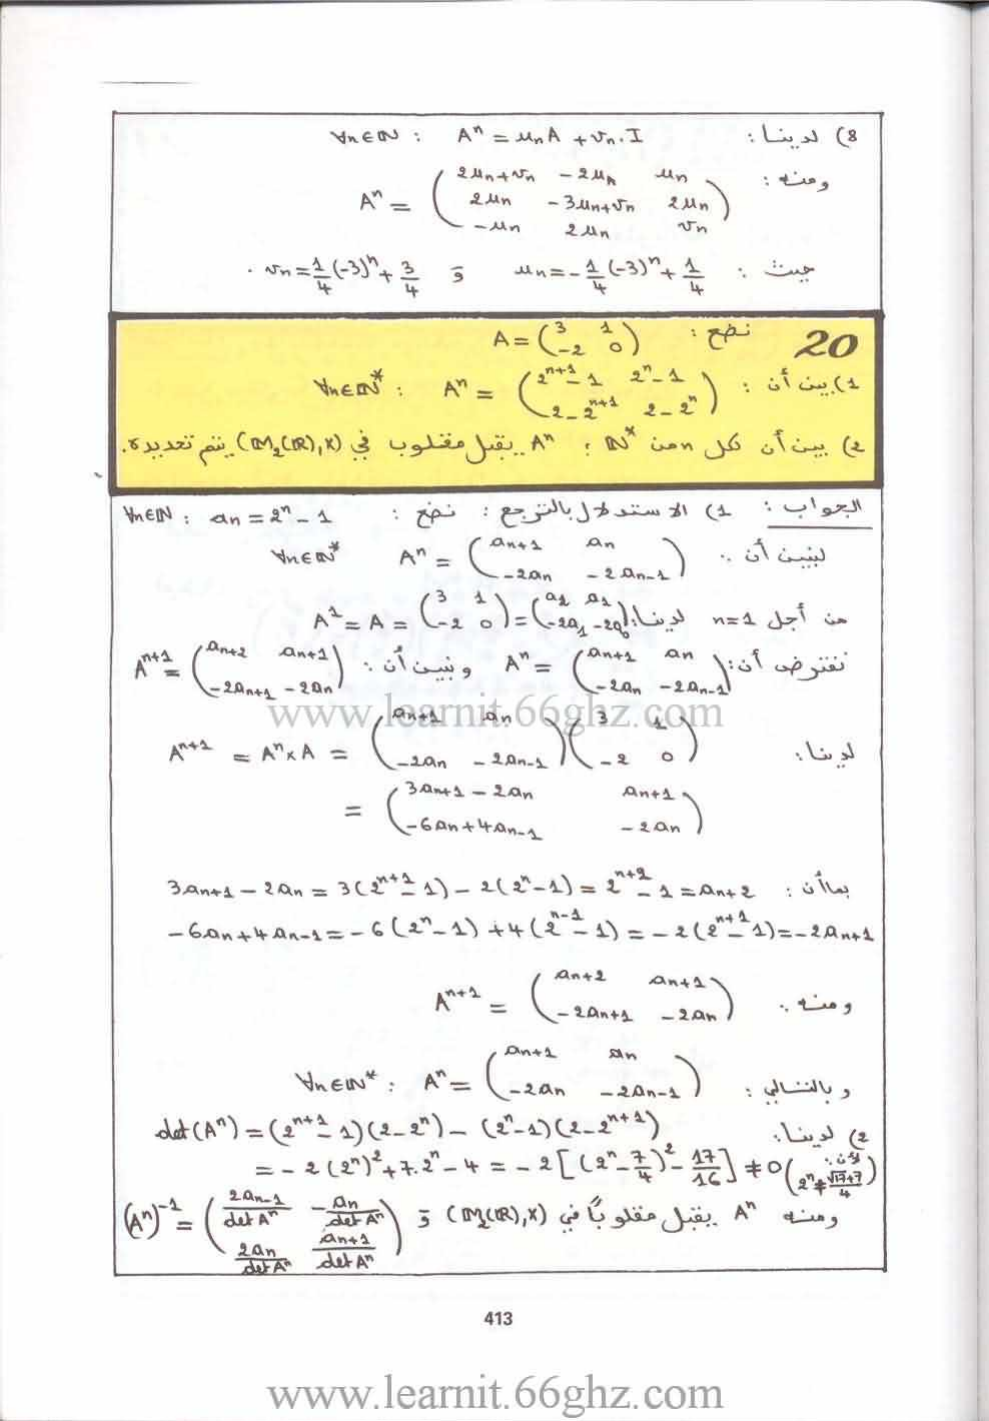 8) لدينا : ∀n∈ℕ : Aⁿ = uₙA + vₙ.I
ومنه : Aⁿ = ( 2uₙ+vₙ  -2uₙ  uₙ
2uₙ  -3uₙ+vₙ  2uₙ
-uₙ  2uₙ  vₙ )
حيث : uₙ = -1/4 (-3)ⁿ + 1/4 و vₙ = 1/4 (-3)ⁿ + 3/4 .
20 نضع : A = ( 3  1
-2  0 )
1) بين أن : ∀n∈ℕ* : Aⁿ = ( 2ⁿ⁺¹-1  2ⁿ-1
2-2ⁿ⁺¹  2-2ⁿ )
2) بين أن لكل n من ℕ* : Aⁿ يقبل مقلوب في (M₂(ℝ),×) يتم تحديده.
الجواب : 1) الاستدلال بالترجع : نضع : ∀n∈ℕ : aₙ = 2ⁿ - 1
لنبين أن : ∀n∈ℕ* Aⁿ = ( aₙ₊₁  aₙ
-2aₙ  -2aₙ₋₁ )
من أجل n=1 لدينا : A¹ = A = ( 3  1
-2  0 ) = ( a₂  a₁
-2a₁  -2a₀ )
نفترض أن : Aⁿ = ( aₙ₊₁  aₙ
-2aₙ  -2aₙ₋₁ ) ونبين أن : Aⁿ⁺¹ = ( aₙ₊₂  aₙ₊₁
-2aₙ₊₁  -2aₙ )
www.learnit.66ghz.com
لدينا : Aⁿ⁺¹ = Aⁿ×A = ( aₙ₊₁  aₙ
-2aₙ  -2aₙ₋₁ ) ( 3  1
-2  0 )
= ( 3aₙ₊₁-2aₙ  aₙ₊₁
-6aₙ+4aₙ₋₁  -2aₙ )
بما أن : 3aₙ₊₁ - 2aₙ = 3(2ⁿ⁺¹-1) - 2(2ⁿ-1) = 2ⁿ⁺² - 1 = aₙ₊₂
-6aₙ+4aₙ₋₁ = -6(2ⁿ-1) + 4(2ⁿ⁻¹-1) = -2(2ⁿ⁺¹-1) = -2aₙ₊₁
ومنه : Aⁿ⁺¹ = ( aₙ₊₂  aₙ₊₁
-2aₙ₊₁  -2aₙ )
وبالتالي : ∀n∈ℕ* : Aⁿ = ( aₙ₊₁  aₙ
-2aₙ  -2aₙ₋₁ )
2) لدينا : det(Aⁿ) = (2ⁿ⁺¹-1)(2-2ⁿ) - (2ⁿ-1)(2-2ⁿ⁺¹)
= -2(2ⁿ)² + 7.2ⁿ - 4 = -2[(2ⁿ - 7/4)² - 17/16] ≠ 0 (لأن : 2ⁿ ≠ (√17+7)/4)
ومنه Aⁿ يقبل مقلوباً في (M₂(ℝ),×) و (Aⁿ)⁻¹ = ( 2aₙ₋₁/det Aⁿ  -aₙ/det Aⁿ
2aₙ/det Aⁿ  aₙ₊₁/det Aⁿ )
413
www.learnit.66ghz.com